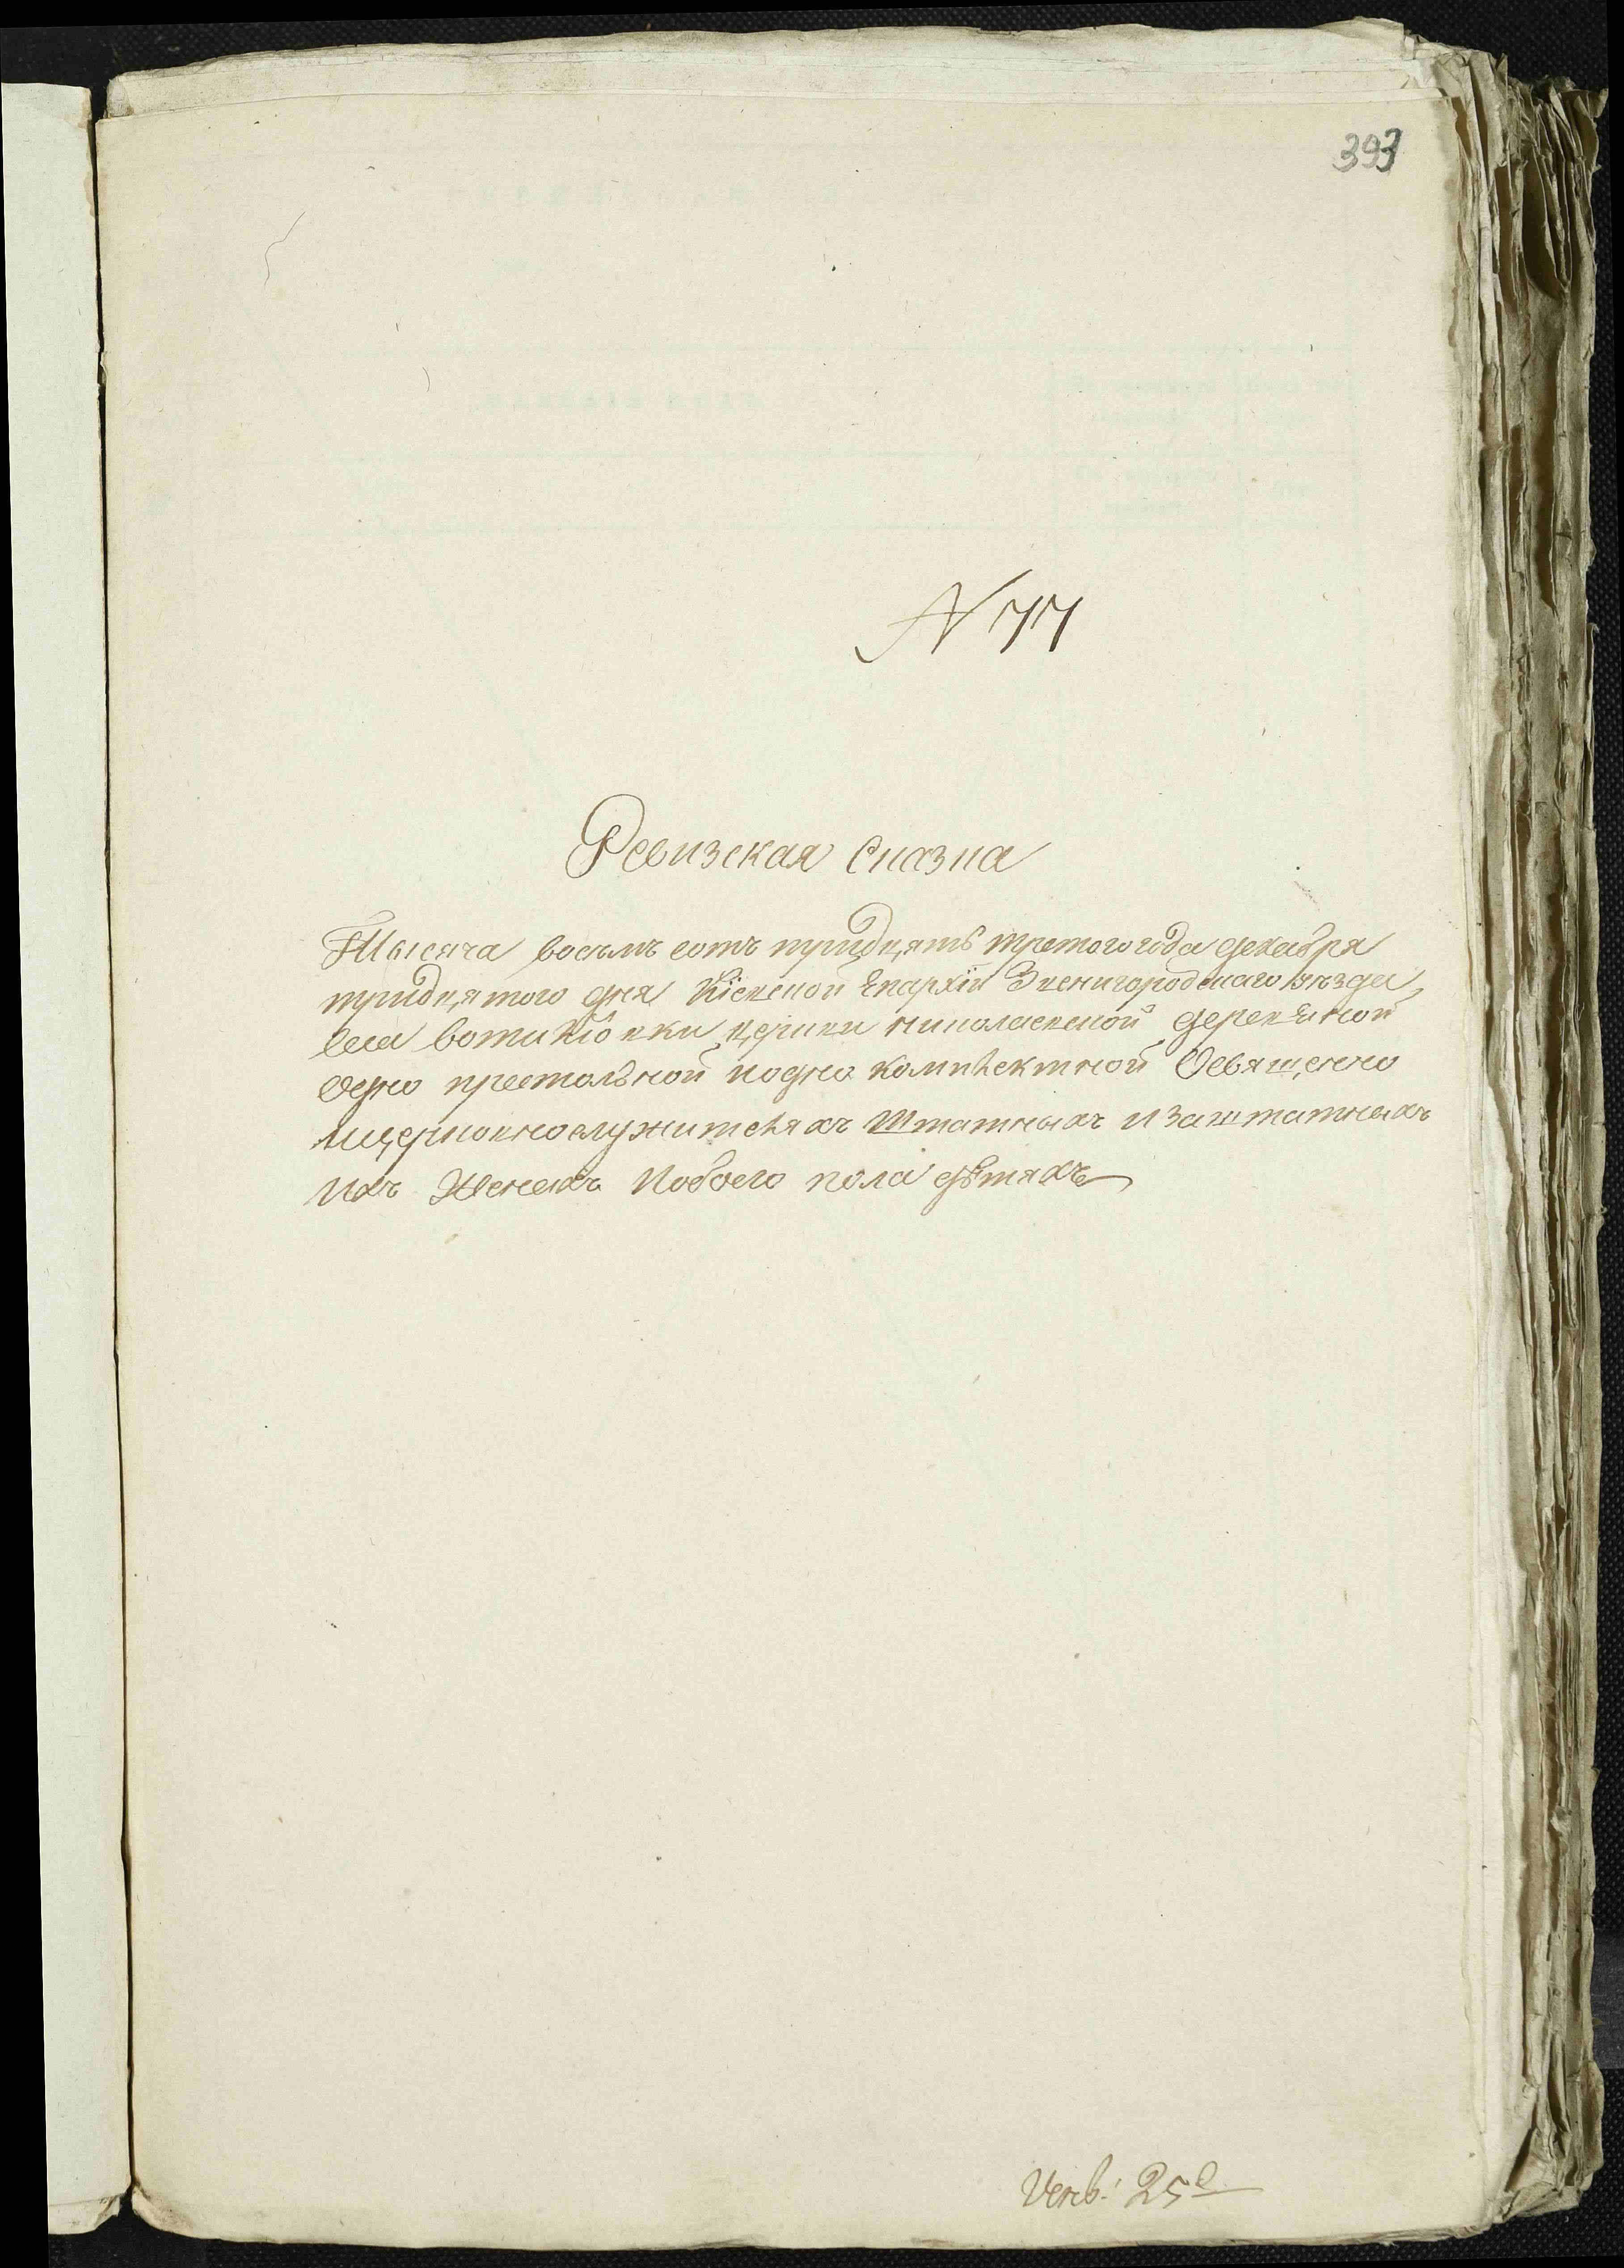 393
N 77
Ревизская Сказка
Тысяча восѣмъ сотъ тридцять третого года декабря
тридцятого дня Кіевской Епархіи Звенигородскаго уѣзда,
села вотилювки церкви николаевской деревяной
одно престольной иодно комплектной Освященно
ицерковнослужителяхъ Штатныхъ и Заштатныхъ
Ихъ Женахъ Иобоего пола дѣтяхъ